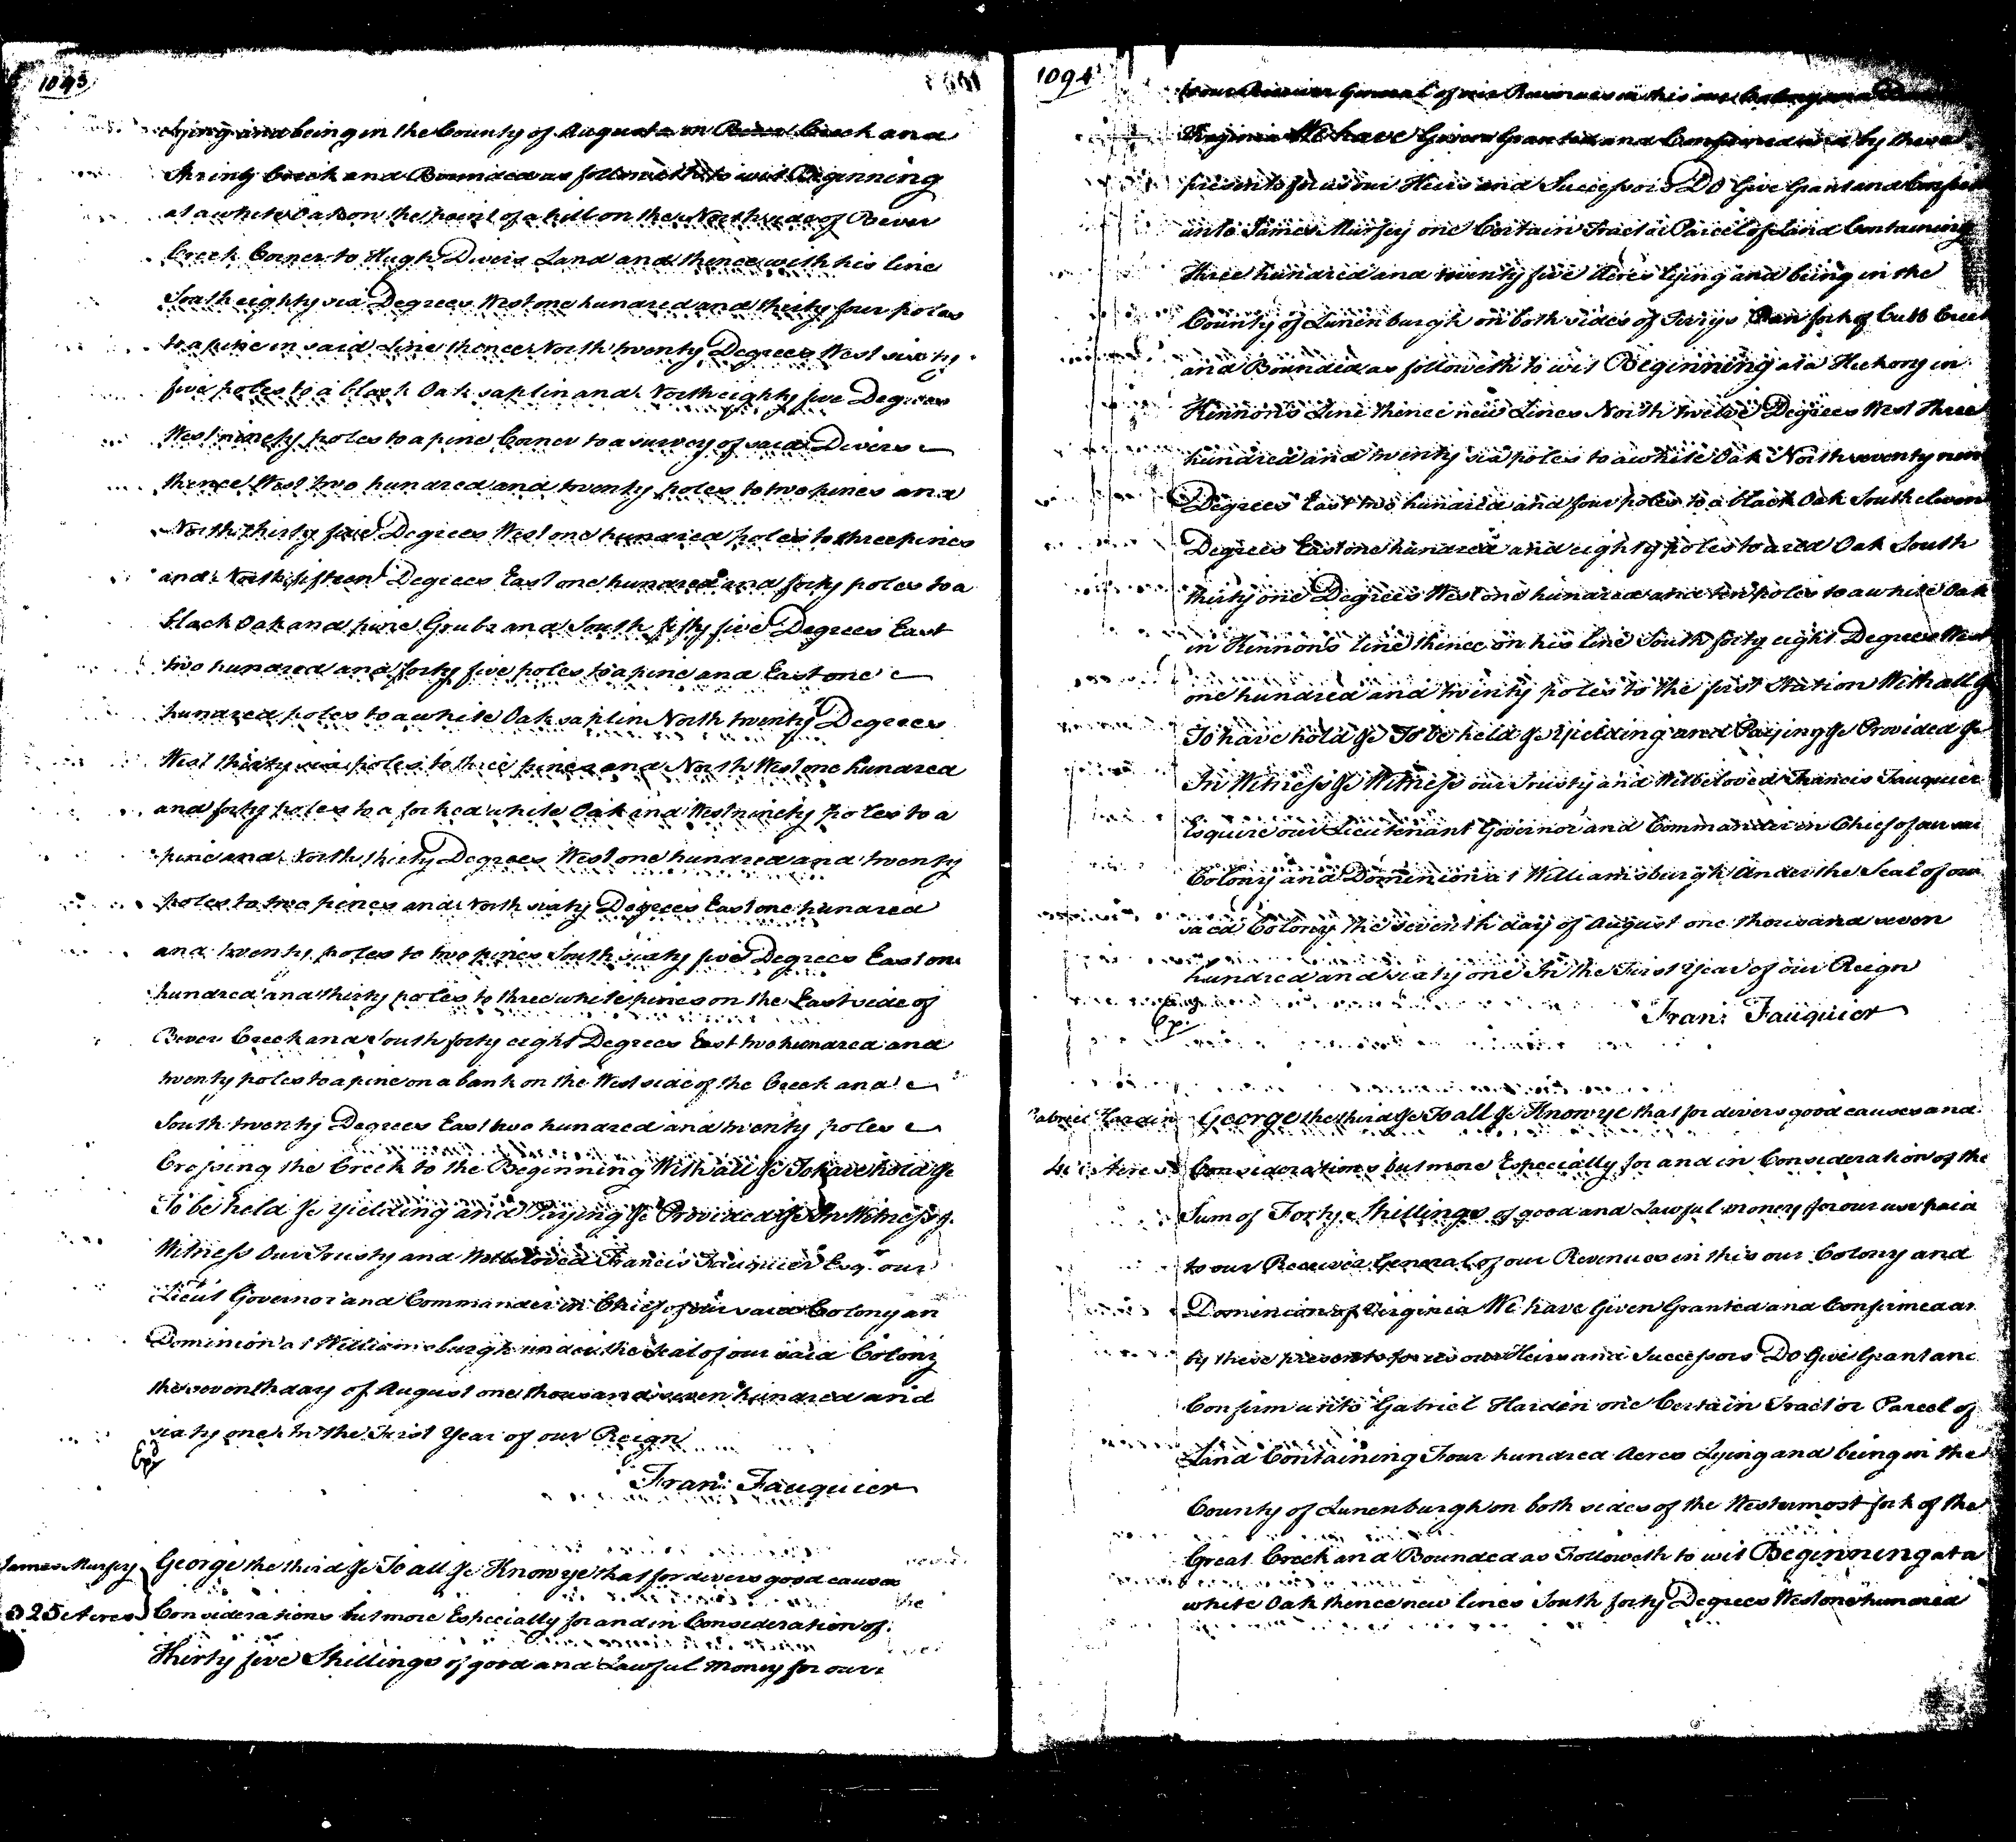 1093
lying and being in the County of Augusta on Bever Creek and
Spring Creek and Bounded as followeth to wit Beginning
at a white Oak on the point of a hill on the North side of Bever
Creek Corner to Hugh Divers Land and thence with his line
South eighty six Degrees West one hundred and thirty four poles
to a pine in said Line thence North twenty Degrees West sixty
five poles to a black Oak saplin and North eighty five Degrees
West ninety poles to a pine Corner to a survey of said Divers
thence West two hundred and twenty poles to two pines and
North thirty five Degrees West one hundred poles to three pines
and North fifteen Degrees East one hundred and forty poles to a
black Oak and pine Grubs and South fifty five Degrees East
two hundred and forty five poles to a pine and East one
hundred poles to a white Oak saplin North twenty Degrees
West thirty six poles to three pines and North West one hundred
and forty poles to a forked white Oak and West ninety poles to a
pine and North thirty Degrees West one hundred and twenty
poles to two pines and North sixty Degrees East one hundred
and twenty poles to two pines South sixty five Degrees East one
hundred and thirty poles to three white pines on the East side of
Bever Creek and South forty eight Degrees East two hundred and
twenty poles to a pine on a bank on the West side of the Creek and
South twenty Degrees East two hundred and twenty poles
Crossing the Creek to the Beginning With all &c To have hold &c
To be held &c yielding and Paying &c Provided &c In Witness &c
Witness Our Trusty and Welbeloved Francis Fauquier Esqr. our
Lieut Governor and Commander in Chief of our said Colony an
Dominion at Williamsburgh under the Seal of our said Colony
the seventh day of August one thousand seven hundred and
sixty one In the First Year of our Reign
Fran: Fauquier
James Murfey
325 Acres
George the third &c To all &c Know ye that for divers good causes
Considerations but more Especially for and in Consideration of
Thirty five Shillings of good and Lawful Money for our
1094
to our Receiver General of our Revenues in this our Colony and
Virginia We have Given Granted and Confirmed and by these
presents for us our Heirs and Successors Do Give Grant and Confirm
unto James Murfey one Certain Tract or Parcel of Land Containing
three hundred and twenty five Acres lying and being in the
County of Lunenburgh on both sides of Terrys fork of Cubb Creek
and Bounded as followeth to wit Beginning at a Hickory in
Kinnon's Line thence new Lines North twelve Degrees West three
hundred and twenty six poles to a white Oak North seventy nine
Degrees East two hundred and four poles to a black Oak South eleven
Degrees East one hundred and eighty poles to a red Oak South
thirty one Degrees West one hundred and ten poles to a white Oak
in Kinnon's line thence on his line South forty eight Degrees West
one hundred and twenty poles to the first Station With all &c
To have hold &c To be held &c yielding and Paying &c Provided &c
In Witness &c Witness our Trusty and Welbeloved Francis Fauquier
Esquire our Lieutenant Governor and Commander in Chief of our sai
Colony and Dominion at Williamsburgh Under the Seal of our
said Colony the seventh day of August one thousand seven
hundred and sixty one In the First Year of our Reign
Fran: Fauquier
Gabriel Hardin
Acres
George the third &c To all &c Know ye that for divers good causes and
Considerations but more Especially for and in Consideration of the
Sum of Forty Shillings of good and Lawful money for our use paid
to our Receiver General of our Revenues in this our Colony and
Dominion of Virginia We have Given Granted and Confirmed an
by these presents for us our Heirs and Successors Do Give Grant and
Confirm unto Gabriel Hardin one Certain Tract or Parcel of
Land Containing Four hundred Acres Lying and being in the
County of Lunenburgh on both sides of the Westermost fork of the
Great Creek and Bounded as Followeth to wit Beginning at a
white Oak thence new lines South forty Degrees West one hundred